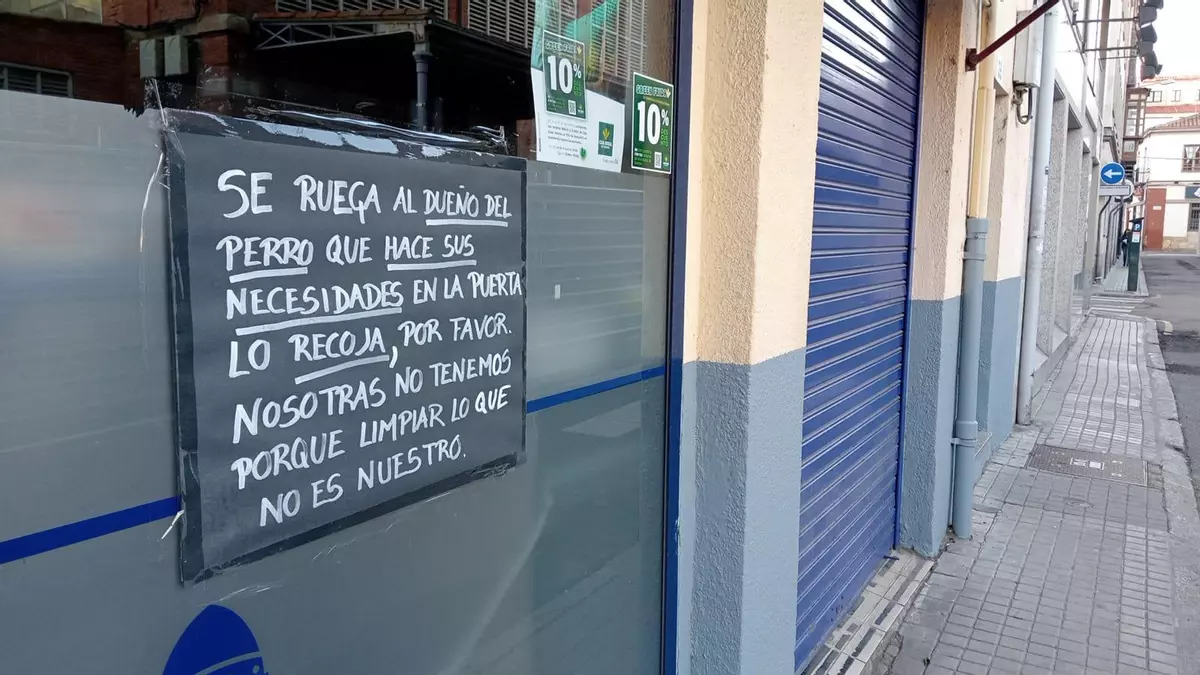 SE RUEGA AL DUEÑO DEL
PERRO QUE HACE SUS
NECESIDADES EN LA PUERTA
LO RECOJA, POR FAVOR.
NOSOTRAS NO TENEMOS
PORQUE LIMPIAR LO QUE
NO ES NUESTRO.
10%
10%